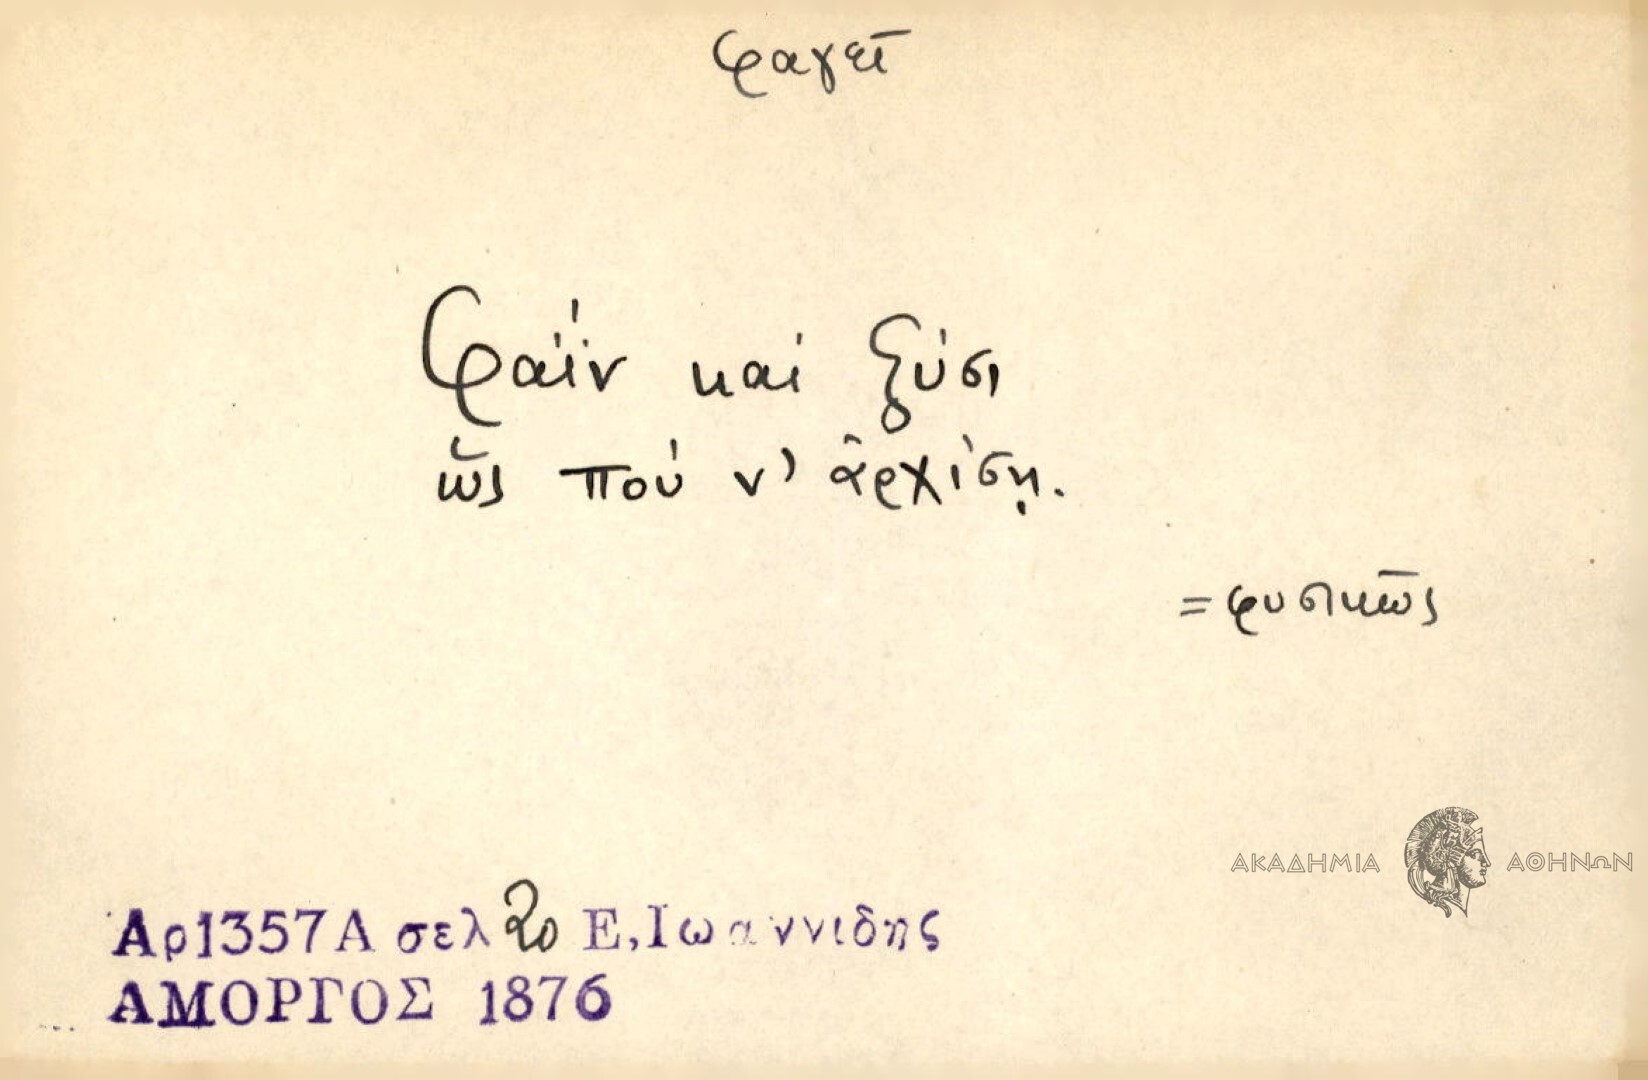 φαγεῖ
Φαΐν καί ξύσι
ὥς πού ν' ἀρχίσῃ.
= φυσικῶς
ΑΚΑΔΗΜΙΑ ΑΘΗΝΩΝ
Αρ1357Α σελ 20 Ε,Ιωαννιδης
ΑΜΟΡΓΟΣ 1876